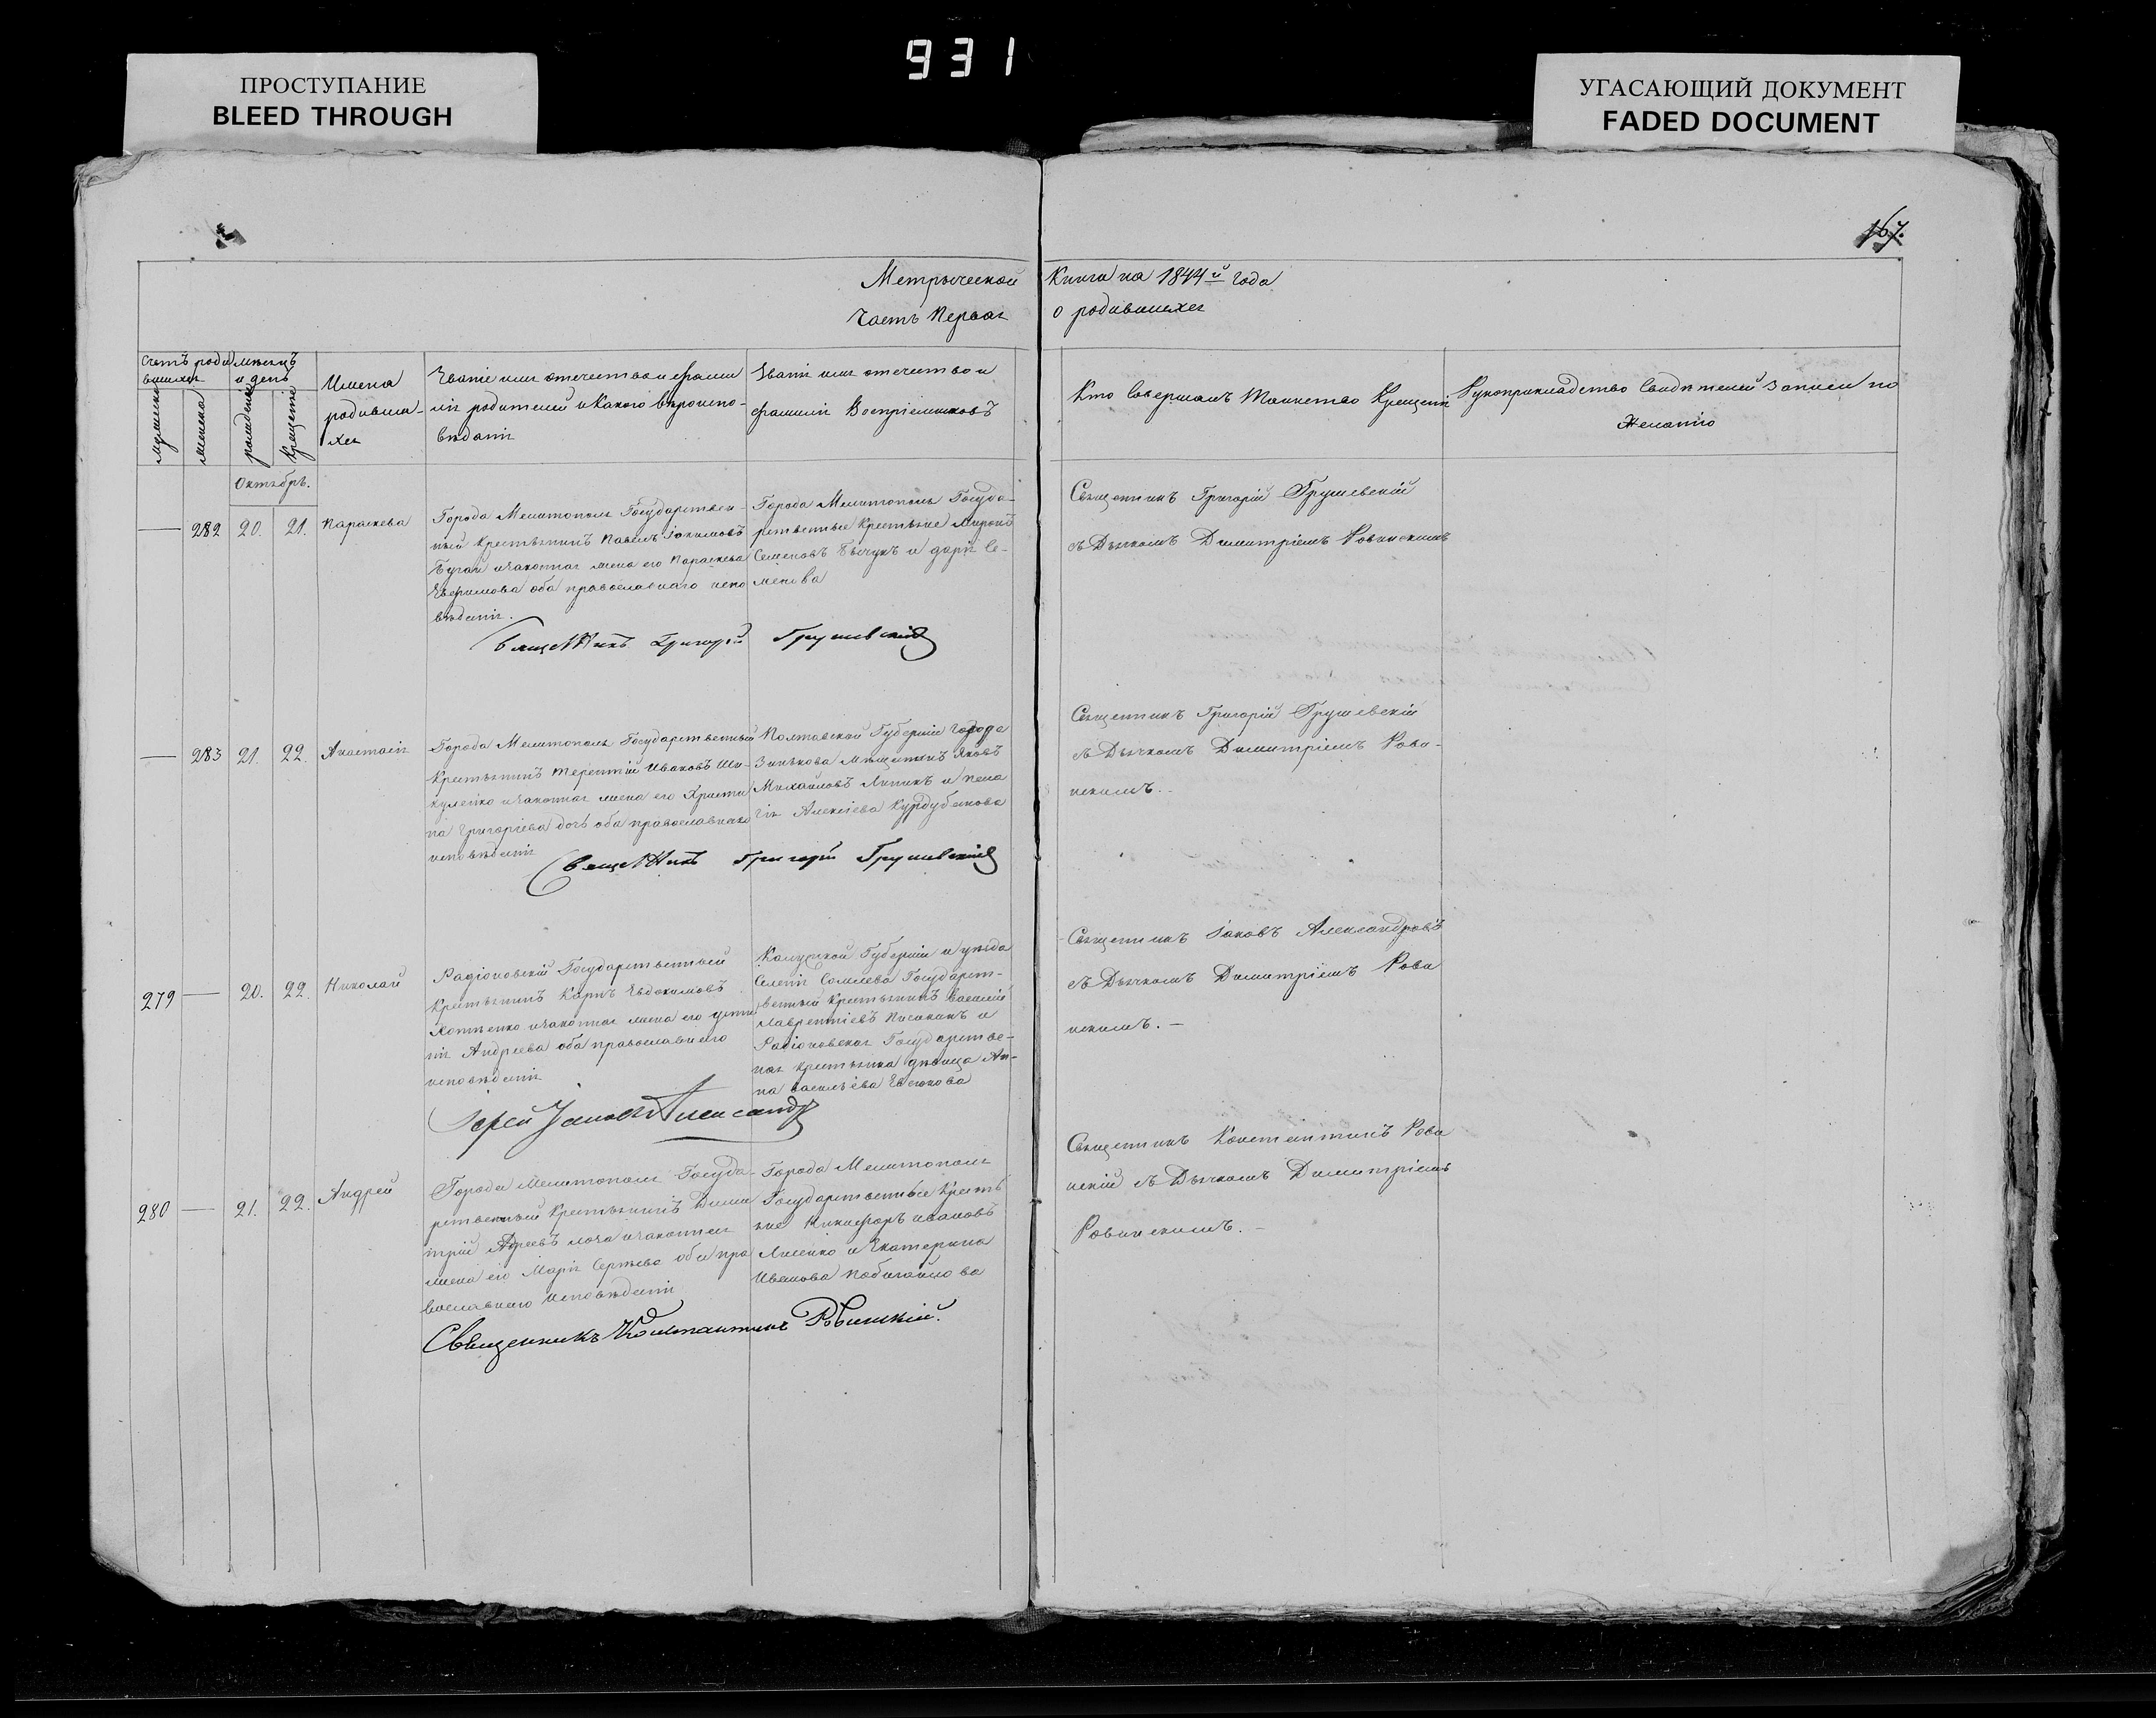 931
ПРОСТУПАНИЕ
BLEED THROUGH
УГАСАЮЩИЙ ДОКУМЕНТ
FADED DOCUMENT
167.
Метрической Книги на 1844й года
Часть Первая о родившихся
Счетъ роди
вшихся
мужеска
женска
месяцъ
и день
рожденія
Крещенія
Имена
родивши-
хся
Званіе имя отечество и фами
лія родителей и Какого вѣроиспо-
вѣданія
Званіе имя отечество и
фамилія Воспріемниковъ
Кто Совершалъ Таинство Крещенія
Рукоприкладство Свидѣтелей Записи по
Желанію
Октябрь.
— 282 20. 21. Параскева
Города Мелитополя Государствен-
ный Крестьянинъ Павелъ Іакимовъ
Бугай и Законная жена его Параскева
Евфимова оба православнаго испо
вѣданія.
Города Мелитополя Госуда-
рственные Крестьяне Миронъ
Семеновъ Бычукъ и Дарія Се-
менова
Священникъ Григорій Грушевскій
Священникъ Григорій Грушевскій
съ Дьячкомъ Димитріемъ Ровинскимъ
— 283 21. 22. Анастасія
Города Мелитополя Государственный
Крестьянинъ Терентій Ивановъ Ши-
куленко и Законная жена его Христи
на Григорієва дочь оба православнаго
исповѣданія
Полтавской Губерніи Города
Зинькова Мѣщанинъ Яковъ
Михайловъ Липикъ и Пела
гія Алексіева Курдубанова
Священникъ Григорій Грушевскій
Священникъ Григорій Грушевскій
съ Дьячкомъ Димитріемъ Рови-
нскимъ.
279 — 20. 22. Николай
Радіоновскій Государственный
Крестьянинъ Карпъ Евдокимовъ
Хотненко и Законная жена его Усти
нія Андреева оба православнаго
исповѣданія
Калужской Губерніи и уѣзда
Селенія Государст-
венный Крестьянинъ Василій
Лаврентіевъ и
Радіоновская Государстве-
ная Крестьянка дѣвица Ан-
на Васильева Евсюкова
Іерей Іаковъ Александровъ
Священникъ Іаковъ Александровъ
съ Дьячкомъ Димитріемъ Рови
нскимъ. —
280 — 21. 22. Андрей
Города Мелитополя Госуда-
рственный Крестьянинъ Дими
трій Андреевъ и Законная
жена его Марія Сергѣева оба пра
вославнаго исповѣданія
Города Мелитополя
Государственные Кресть
яне Никифоръ Ивановъ
Лисенко и Екатерина
Иванова Побигайлова
Священникъ Константинъ Ровинскій.
Священникъ Константинъ Рови
нскій съ Дьячкомъ Димитріемъ
Ровинскимъ. —